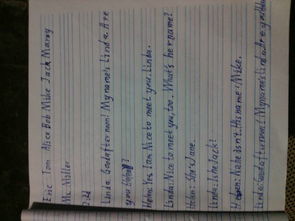 Eric Tom Alice Bob Mike Jack Marry
Mr. Miller
Linda: Good afternoon! My name's Linda. Are
you
Helen: Yes I am. Nice to meet you, Linda.
Linda: Nice to meet you, too. What's her name?
Helen: She's Jane.
Linda: Is he Jack?
No, he isn't. His name is Mike.
Linda: Good afternoon! My name's Linda. Are you